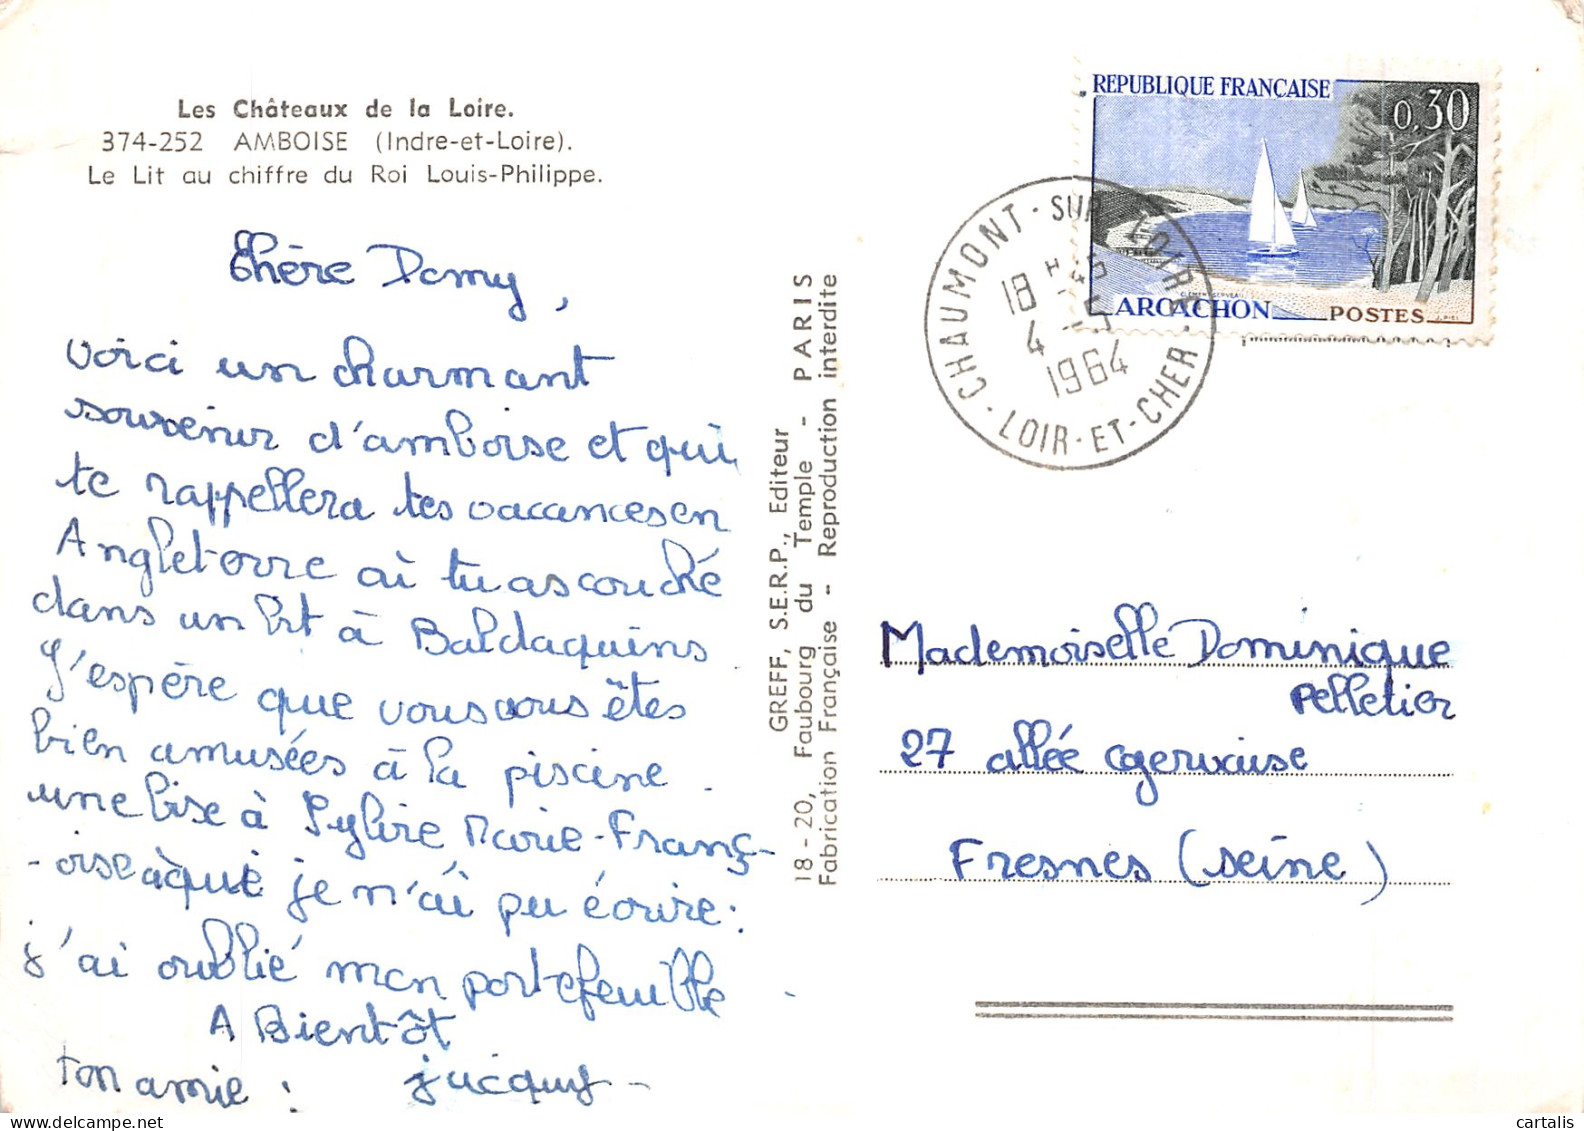 Les Châteaux de la Loire.
374-252 AMBOISE (Indre-et-Loire).
Le Lit au chiffre du Roi Louis-Philippe.
Chère Domy,
voici un charmant
souvenir d'amboise et qui
te rappellera tes vacances en
Angleterre où tu as couché
dans un lit à Baldaquins
J'espère que vous vous êtes
bien amusées à la piscine.
une bise à Sylvie Marie-Franç-
-oise à qui je n'ai pu écrire:
j'ai oublié mon portefeuille
A Bientôt
ton amie : Jacquy-
GREFF, S.E.R.P., Editeur
18 - 20, Faubourg du Temple - PARIS
Fabrication Française - Reproduction interdite
REPUBLIQUE FRANÇAISE
0,30
ARCACHON POSTES
CHAUMONT-SUR-LOIRE
18 H 45
4 -5
1964
LOIR-ET-CHER
Mademoiselle Dominique
Pelletier
27 allée gervaise
Fresnes (seine)
cartalis